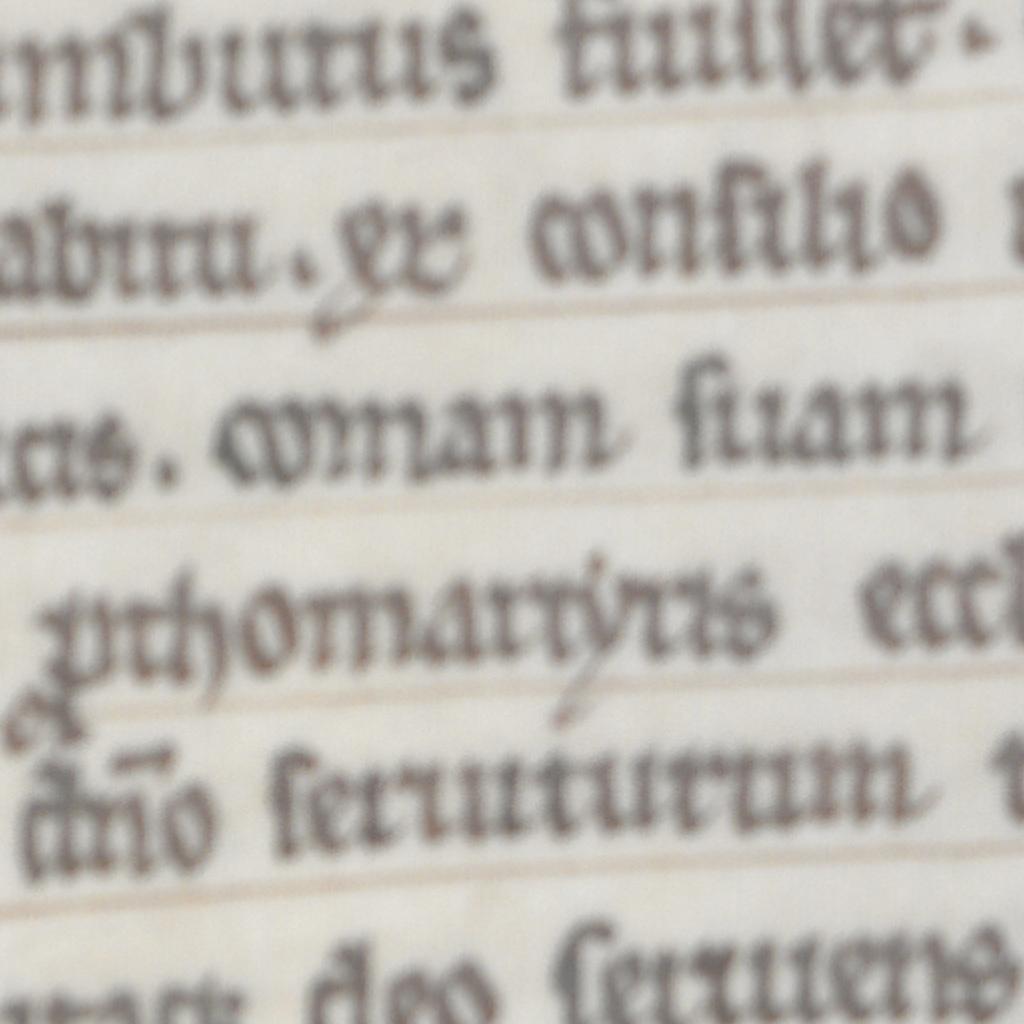 imbutus fuisset.
abitu. ex consilio
comam suam
pthomartyris eccl
dn̄o seruiturum
deo seruiens